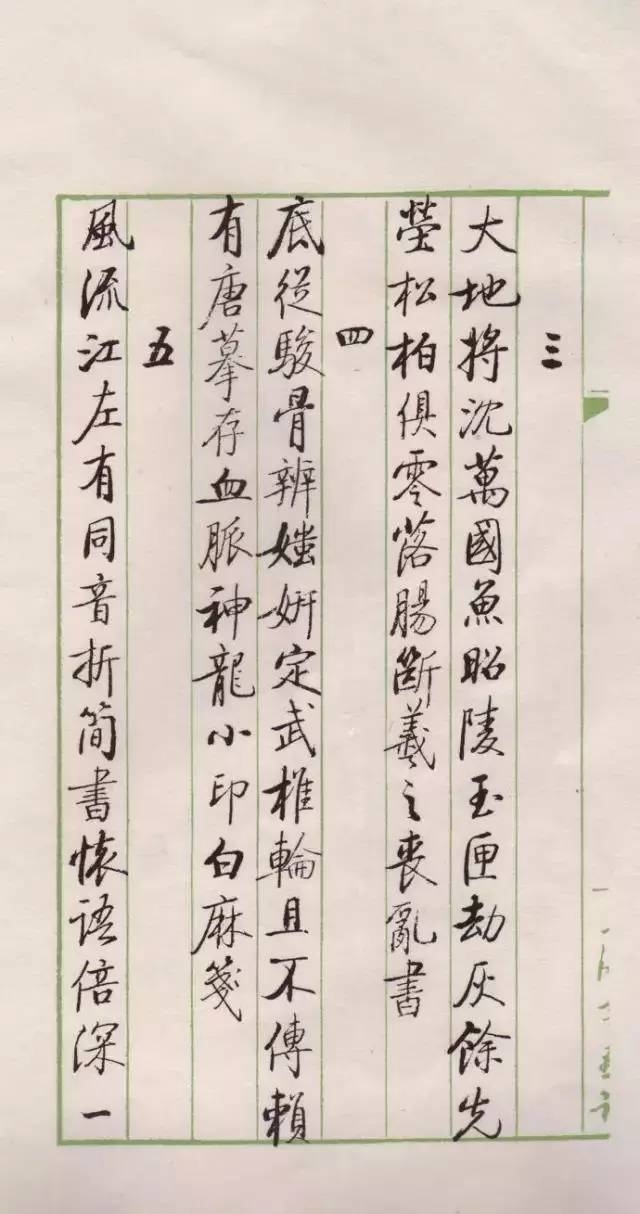 三
大地将沈萬國魚昭陵玉匣劫灰餘先
塋松柏俱零落腸斷羲之喪亂書
四
底從駿骨辨媸妍定武椎輪且不傳賴
有唐摹存血脈神龍小印白麻箋
五
風流江左有同音折簡書懷語倍深一